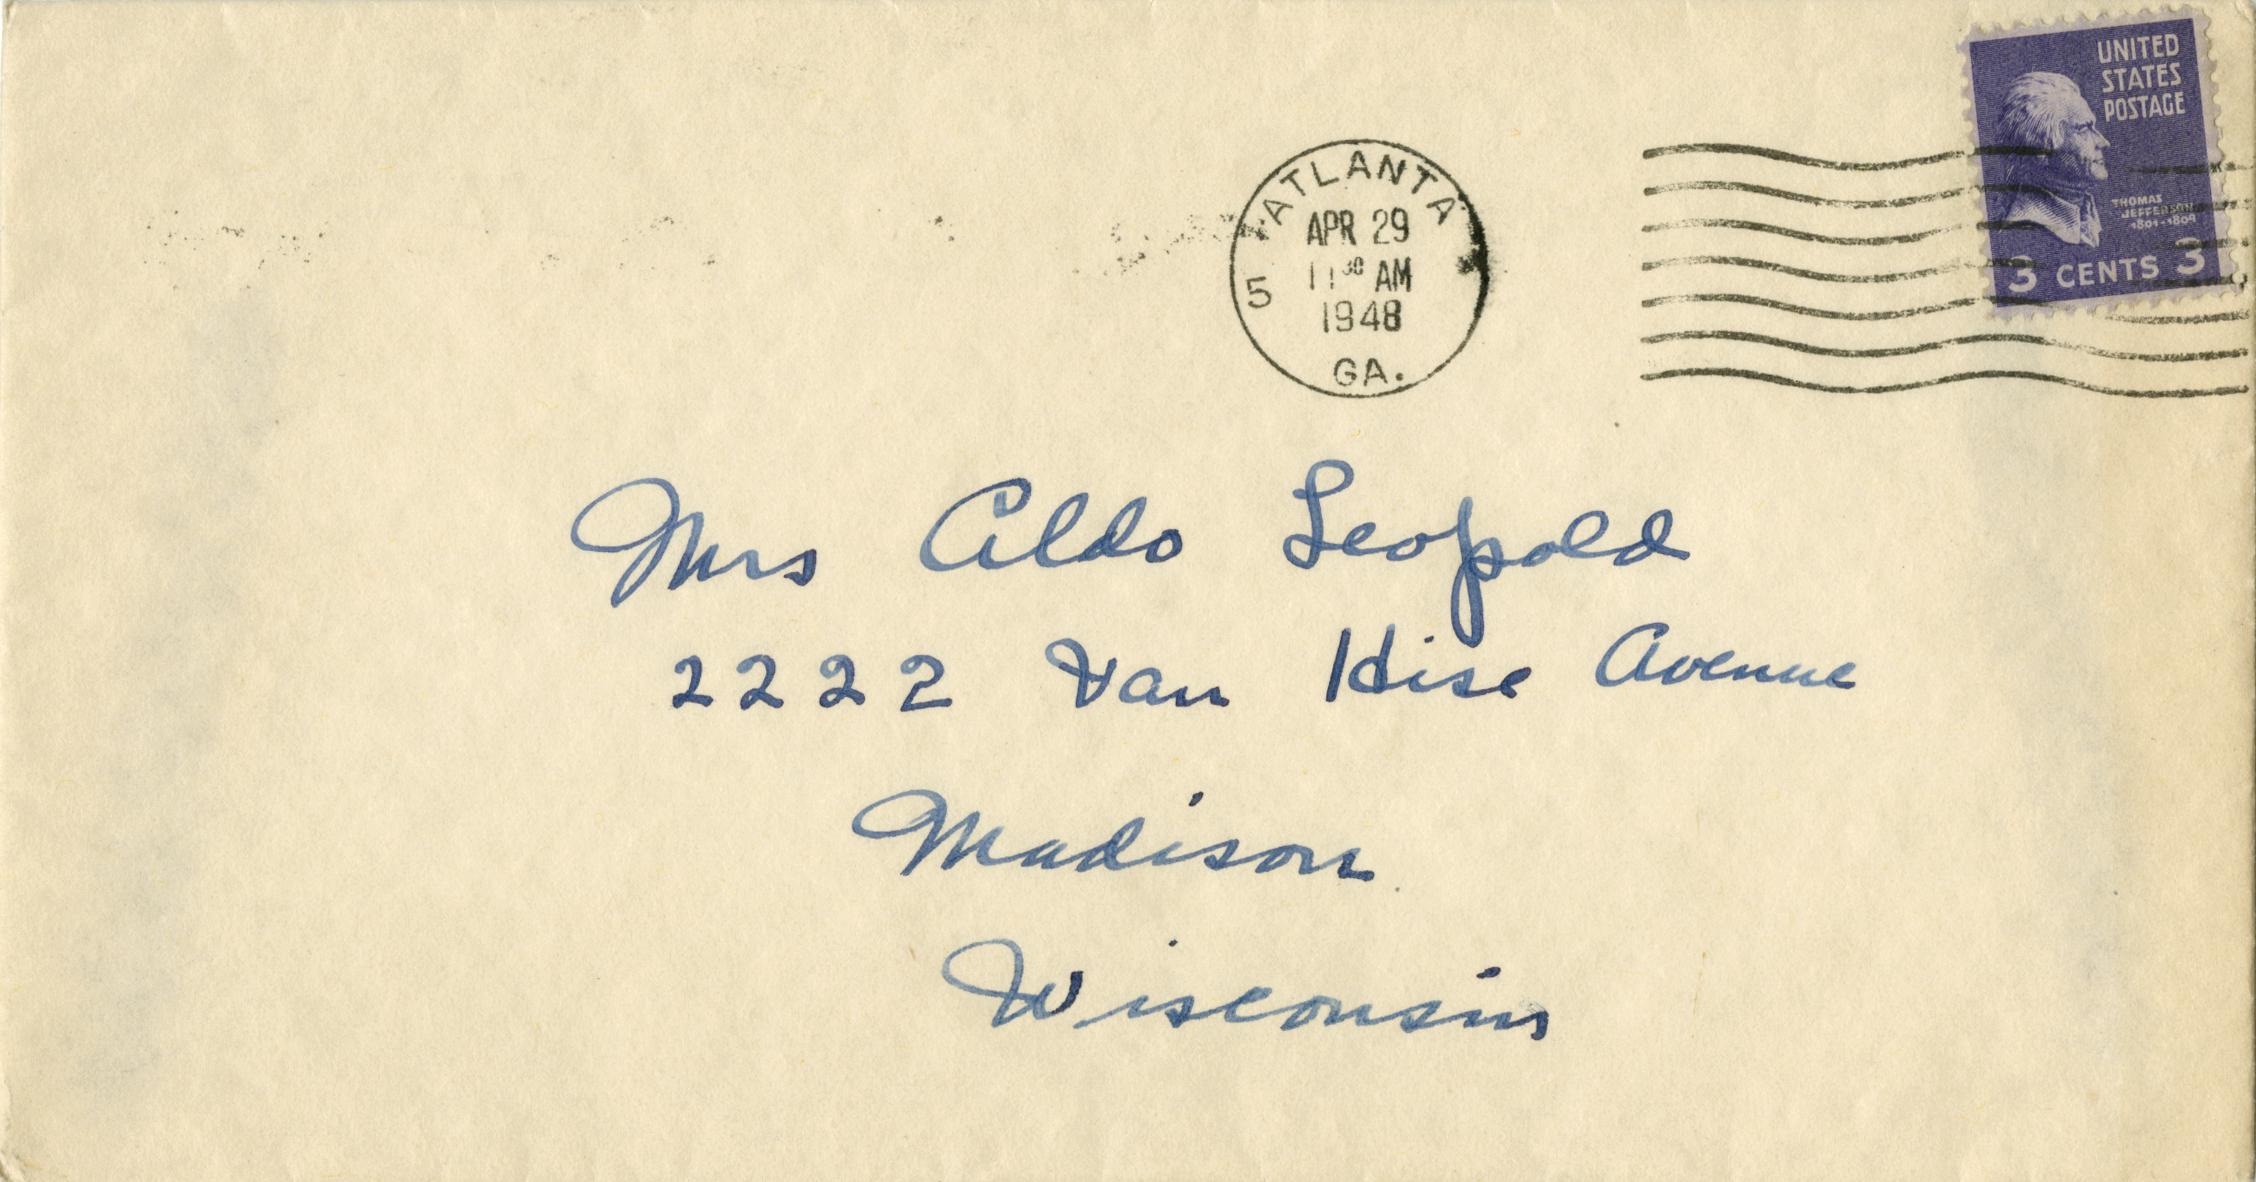 UNITED
STATES
POSTAGE
THOMAS
JEFFERSON
1801-1809
3 CENTS 3
ATLANTA
APR 29
11 30 AM
5
1948
GA.
Mrs Aldo Leopold
2222 Van Hise Avenue
Madison
Wisconsin